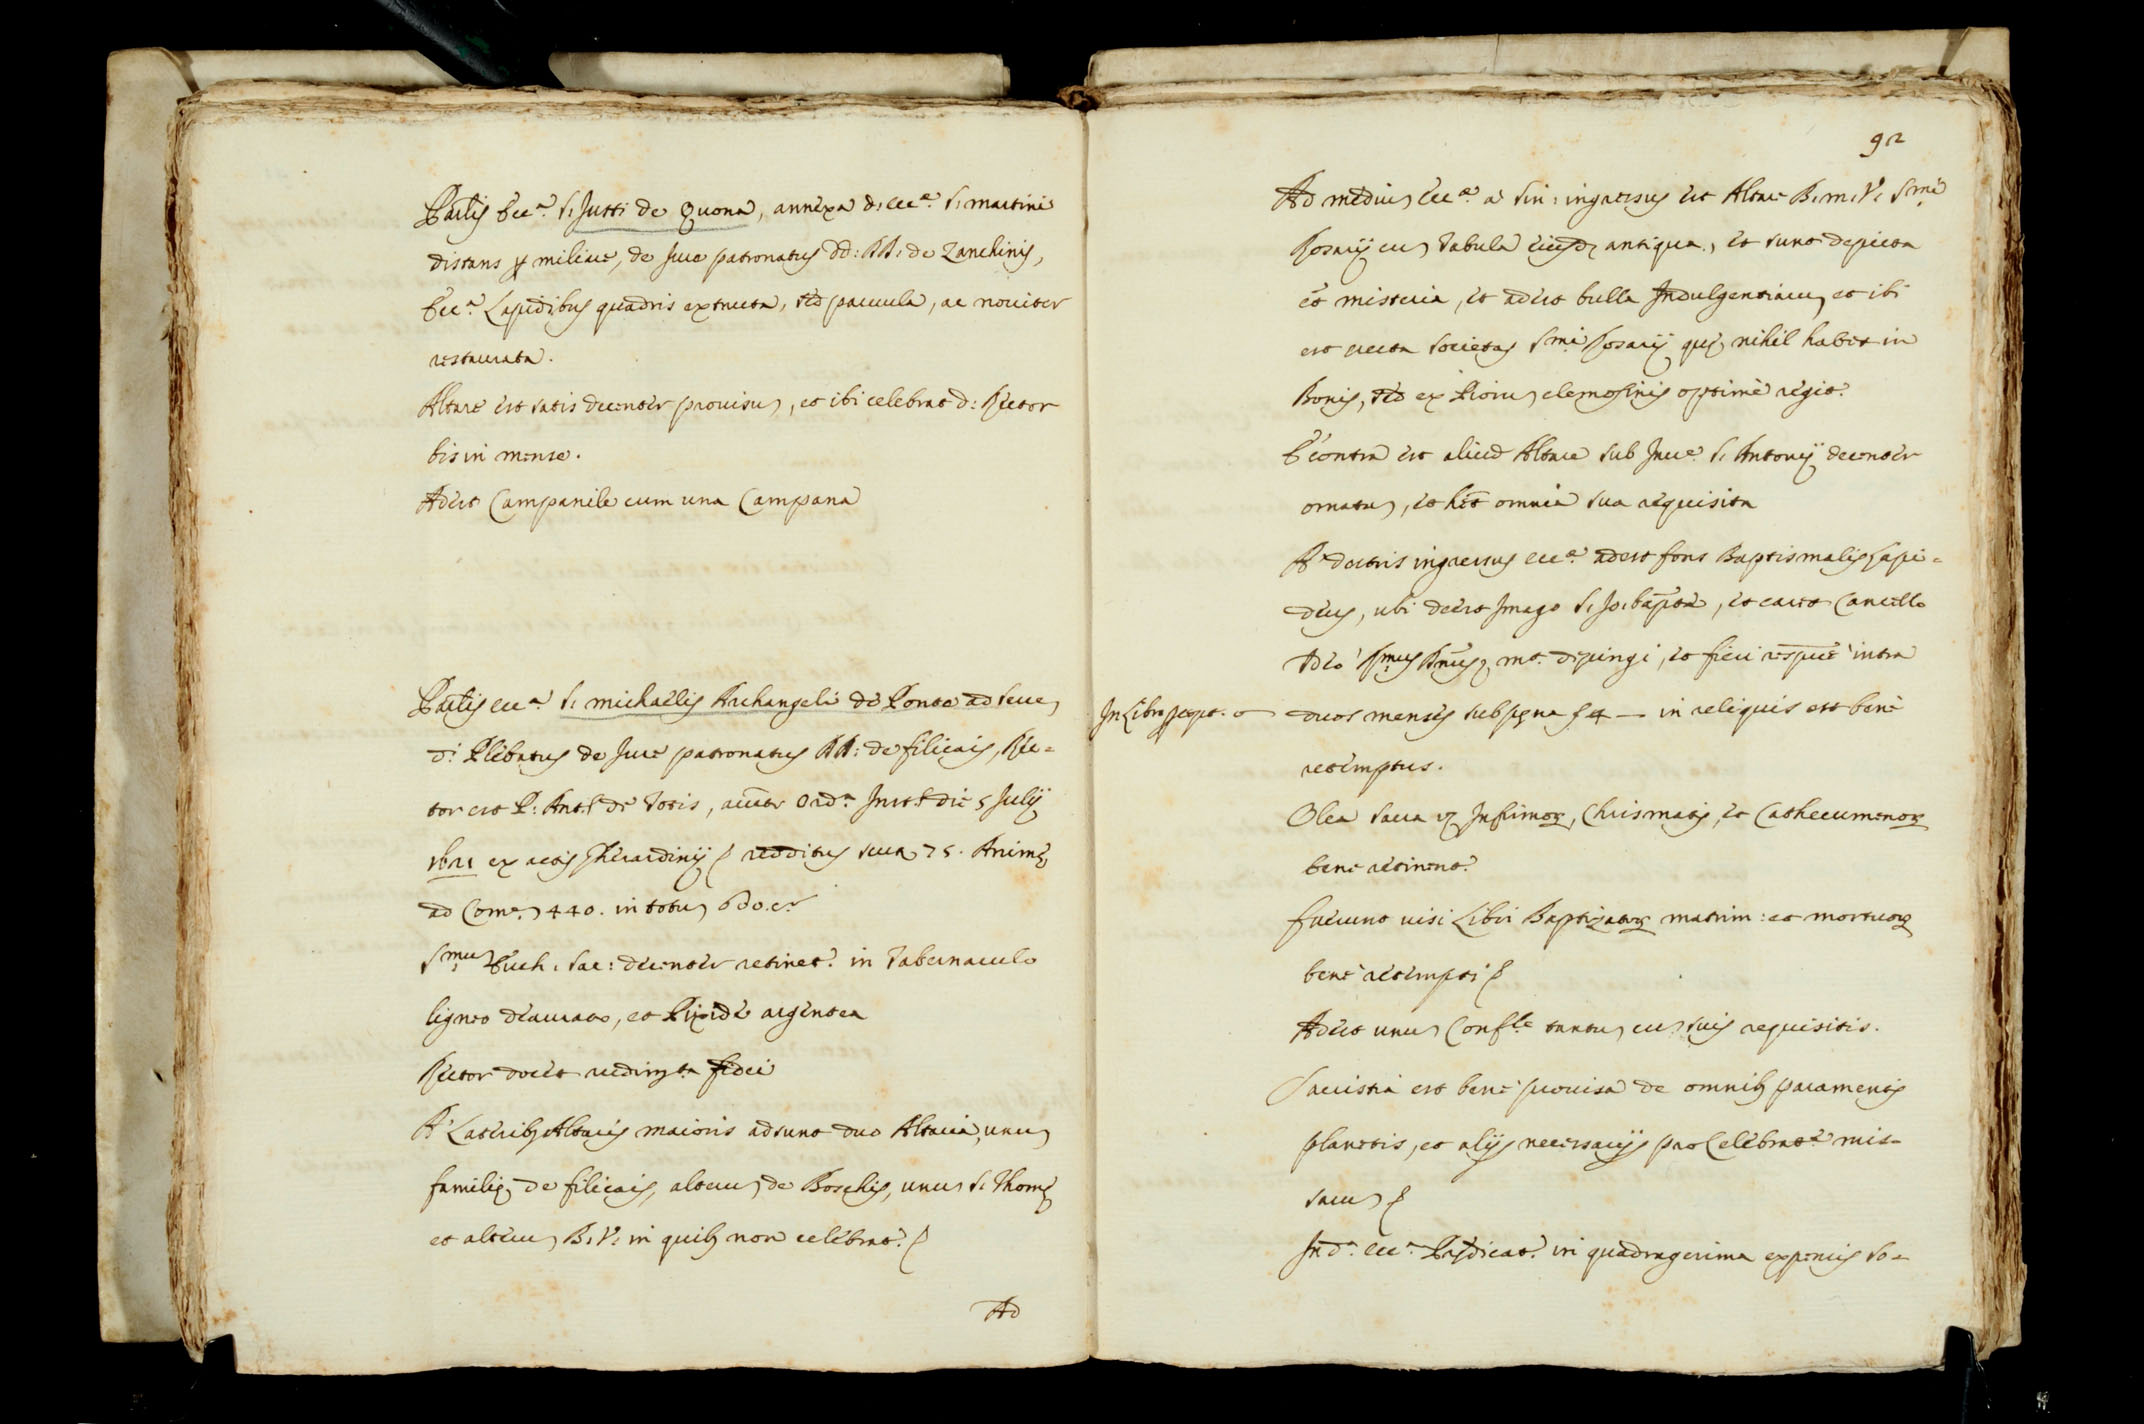 Par.lis Ecc.a S. Justi de Quona, annexa d. ecc.e S. martini
distans p miliare, de Jure patronatus dd: AA: de Zanchinis,
Ecc.a Lapidibus quadris extructa, sed parvula, ac noviter
restaurata.
Altare est satis decenter provisu, et ibi celebrat d: Rector
bis in mense.
Adest Campanile cum una Campana
Par.lis ecc.a S. michaelis Archangeli de Ponte ad Seve
d: Plebatus de Jure patronatus AA: de filicais, Rec=
tor est P: Ant.s de Totis, auctte Ord.a Inst.s die 5 Julij
1621 ex actis Gherardinij redditus scuta 75. Anime
ad Com.e 440. in totu 600. c.a
S.mu Euch. Sac: decenter retinet.r in Tabernaculo
ligneo deaurato, et Pixide argentea
Rector docet rudimta fidei
A Laterib3 Altaris maioris adsunt duo Altaria, unu
familie de filicais, alteru de Boschis, unu S. Thome
et alteru B. V. in quib3 non celebrat.r
Ad
92
Ad mediu ecc.e a sin: ingressus est Altare B. m. V. S.mi
Rosarij cu Tabula eiusd antiqua, et sunt depicta
et misteria, et adest bulla Indulgentiaru et ibi
est erecta societas S.mi Rosarij que nihil habet in
Bonis, sed ex Pioru elemosinis optime regit.r
E contra est aliud Altare sub Invc.e S. Antonij decenter
ornatu, et het omnia sua requisita
A dextris ingressus ecc.e adest fons Baptismalis Lapi=
deus, ubi deest Imago S. Jo: bapta, et caret Cancello
Ideo R.mus m.t depingi, et fieri respve intra
In Libro
duos menses sub pena — in reliquis est bene
retemptus.
Olea sacra v3 Infirmor, Chrismatis, et Cathecumenor
bene retinent.r
fuerunt visi Libri Baptizator matrim: et mortuor
bene retempti
Adest unu Conf.le tantu cu suis requisitis.
Sacristia est bene provisa de omnib3 paramentis
planetis, et alijs necessarijs pro Celebrat.e mis=
saru
In d.a ecc.a Predicat.r in quadragesima expensis So=